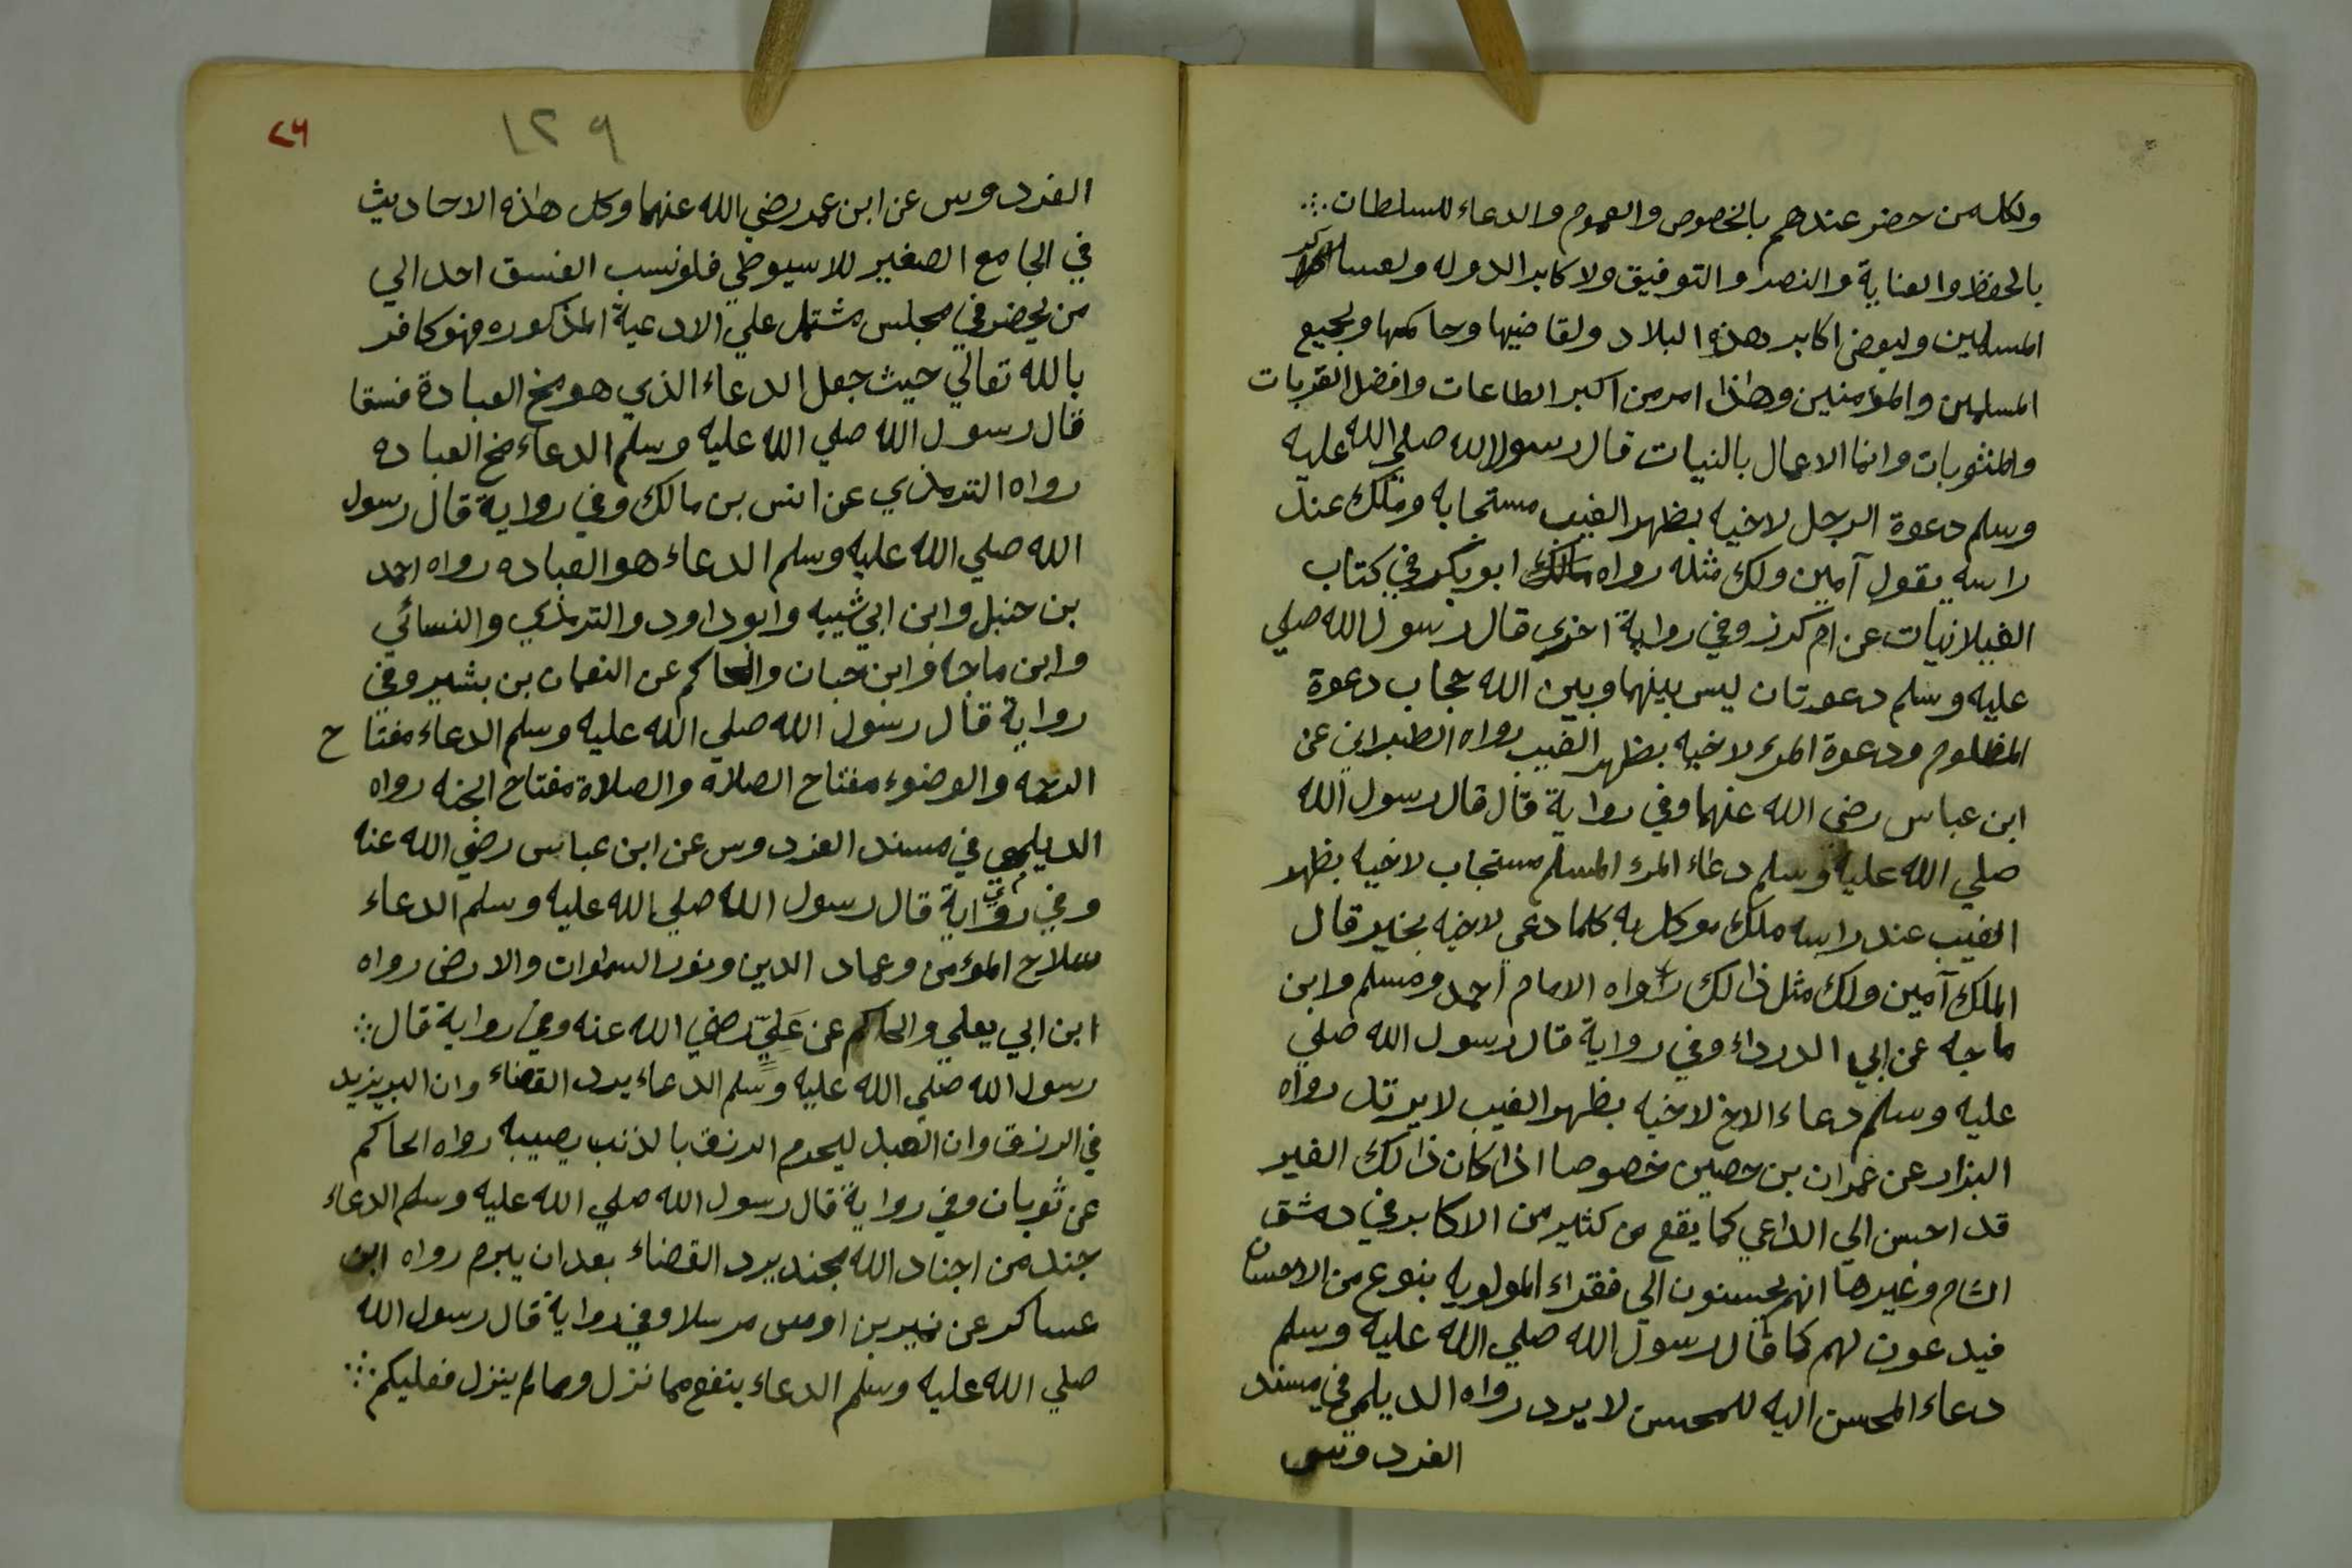 ولكل من حضر عندهم بالخصوص والعموم والدعاء للسلطان
بالحفظ والعناية والنصر والتوفيق ولاكابر الدوله ولعساكر
المسلمين ولبعض اكابر هذه البلاد ولقاضيها وحاكمها ولجميع
المسلمين والمؤمنين وهذا امر من اكبر الطاعات وافضل القربات
والمثوبات وانما الاعمال بالنيات قال رسول الله صلي الله عليه
وسلم دعوة الرجل لاخيه بظهر الغيب مستجابه وملك عند
راسه يقول آمين ولك مثله رواه ابو بكر في كتاب
الغيلانيات عن ام كرز وفي رواية اخري قال رسول الله صلي
عليه وسلم دعوتان ليس بينهما وبين الله حجاب دعوة
المظلوم ودعوة المرء لاخيه بظهر الغيب رواه الطبراني عن
ابن عباس رضي الله عنهما وفي رواية قال قال رسول الله
صلي الله عليه وسلم دعاء المرء المسلم مستجاب لاخيه بظهر
الغيب عند راسه ملك موكل به كلما دعي لاخيه بخير قال
الملك آمين ولك مثل ذالك رواه الامام احمد ومسلم وابن
ماجه عن ابي الدرداء وفي رواية قال رسول الله صلي
عليه وسلم دعاء الاخ لاخيه بظهر الغيب لا يرتد رواه
البزار عن عمران بن حصين خصوصا اذا كان ذالك الغير
قد احسن الي الداعي كما يقع من كثير من الاكابر في دمشق
الشام وغيرها انهم يحسنون الي فقراء المولويه بنوع من الاحسان
فيدعون لهم كما قال رسول الله صلي الله عليه وسلم
دعاء المحسن اليه للمحسن لا يرد رواه الديلمي في مسند
الفردوس
١٢٩
٢٦
الفردوس عن ابن عمر رضي الله عنهما وكل هذه الاحاديث
في الجامع الصغير للاسيوطي فلو نسب الفسق احد الي
من يحضر في مجلس مشتمل علي الادعية المذكوره فهو كافر
بالله تعالي حيث جعل الدعاء الذي هو مخ العبادة فسقا
قال رسول الله صلي الله عليه وسلم الدعاء مخ العباده
رواه الترمذي عن انس بن مالك وفي رواية قال رسول
الله صلي الله عليه وسلم الدعاء هو العباده رواه احمد
بن حنبل وابن ابي شيبه وابو داود والترمذي والنسائي
وابن ماجه وابن حبان والحاكم عن النعمان بن بشير وفي
رواية قال رسول الله صلي الله عليه وسلم الدعاء مفتاح
الرحمه والوضوء مفتاح الصلاة والصلاة مفتاح الجنه رواه
الديلمي في مسند الفردوس عن ابن عباس رضي الله عنه
وفي رواية قال رسول الله صلي الله عليه وسلم الدعاء
سلاح المؤمن وعماد الدين ونور السموات والارض رواه
ابن ابي يعلي والحاكم عن عَلِيّ رضي الله عنه وفي رواية قال
رسول الله صلي الله عليه وسلم الدعاء يرد القضاء وان البر يزيد
في الرزق وان العبد ليحرم الرزق بالذنب يصيبه رواه الحاكم
عن ثوبان وفي رواية قال رسول الله صلي الله عليه وسلم الدعاء
جند من اجناد الله مجند يرد القضاء بعد ان يبرم رواه ابن
عساكر عن نمير بن اوس مرسلا وفي رواية قال رسول الله
صلي الله عليه وسلم الدعاء ينفع مما نزل ومما لم ينزل فعليكم